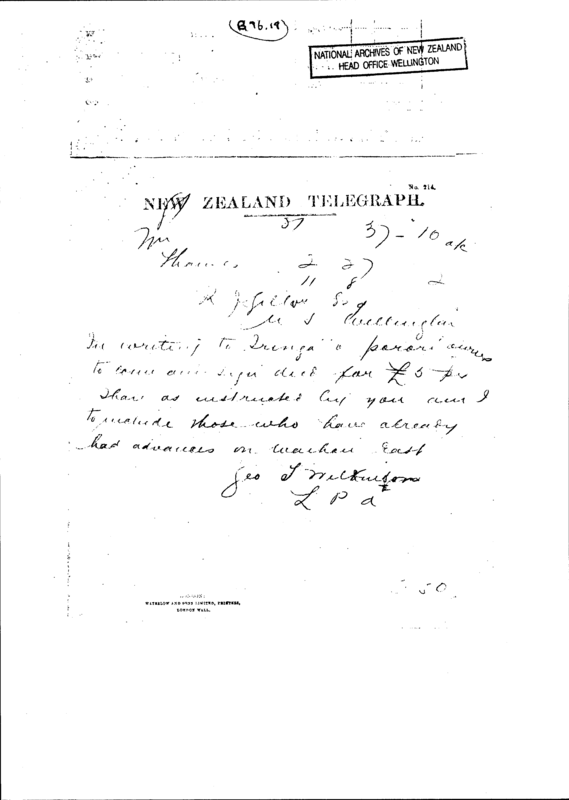 (B 76.19)
NATIONAL ARCHIVES OF NEW ZEALAND
HEAD OFFICE WELLINGTON
No. 214.
NEW ZEALAND TELEGRAPH.
37
37 - 10 ak
Thames 2 27
11 8 2
R J Gillon Esq
Wellington
In writing to Iringa o parori owners
to come and sign deed for £5 per
share as instructed by you am I
to include those who have already
had advances on Waihou East
Geo T Wilkinson
L P a
50
WATERLOW AND SONS LIMITED, PRINTERS,
LONDON WALL.